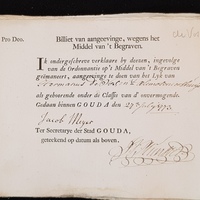 Pro Deo.
Billiet van aangeevinge, wegens het
Middel van 't Begraven.
Ik ondergeschreven verklaare by deezen, ingevolge
van de Ordonnantie op 't Middel van 't Begraven
geëmaneert, aangeevinge te doen van het Lyk van
als gehoorende onder de Classe van d' onvermogende.
Gedaan binnen GOUDA, den 27 July 1773
Jacob Meyer
Ter Secretarye der Stad GOUDA,
geteekend op datum als boven.